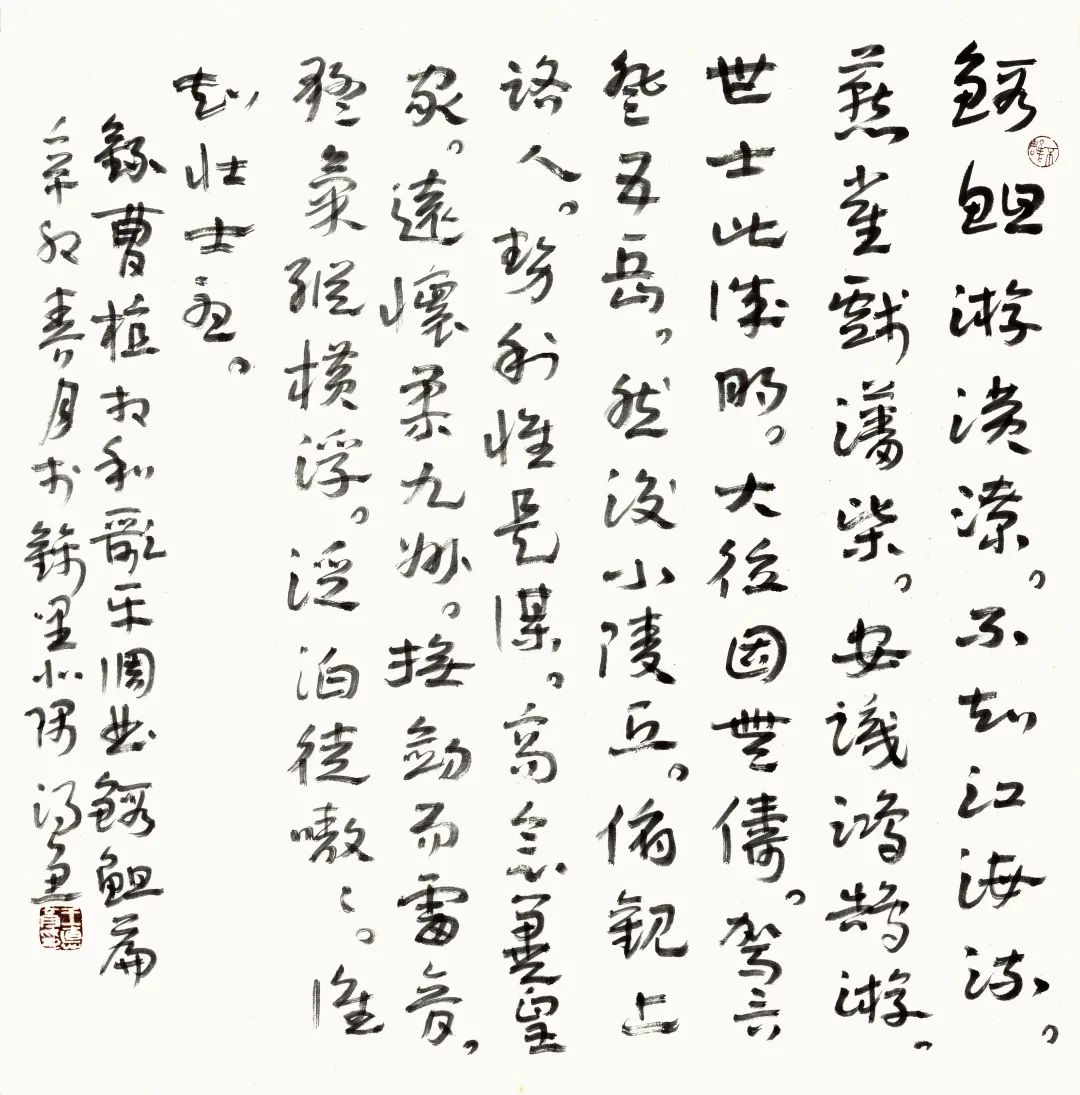 鰕䱇游潢潦。不知江海流。
燕雀戲藩柴。安識鴻鵠游。
世士此誠明。大德固無儔。駕言
登五岳。然後小陵丘。俯觀上
路人。勢利惟是謀。高念翼皇
家。遠懷柔九州。撫劍而雷音。
猛氣縱橫浮。泛泊徒嗷〻。誰
知壯士憂。
錄曹植相和歌平調曲鰕䱇篇
辛卯春月於錦里北隅